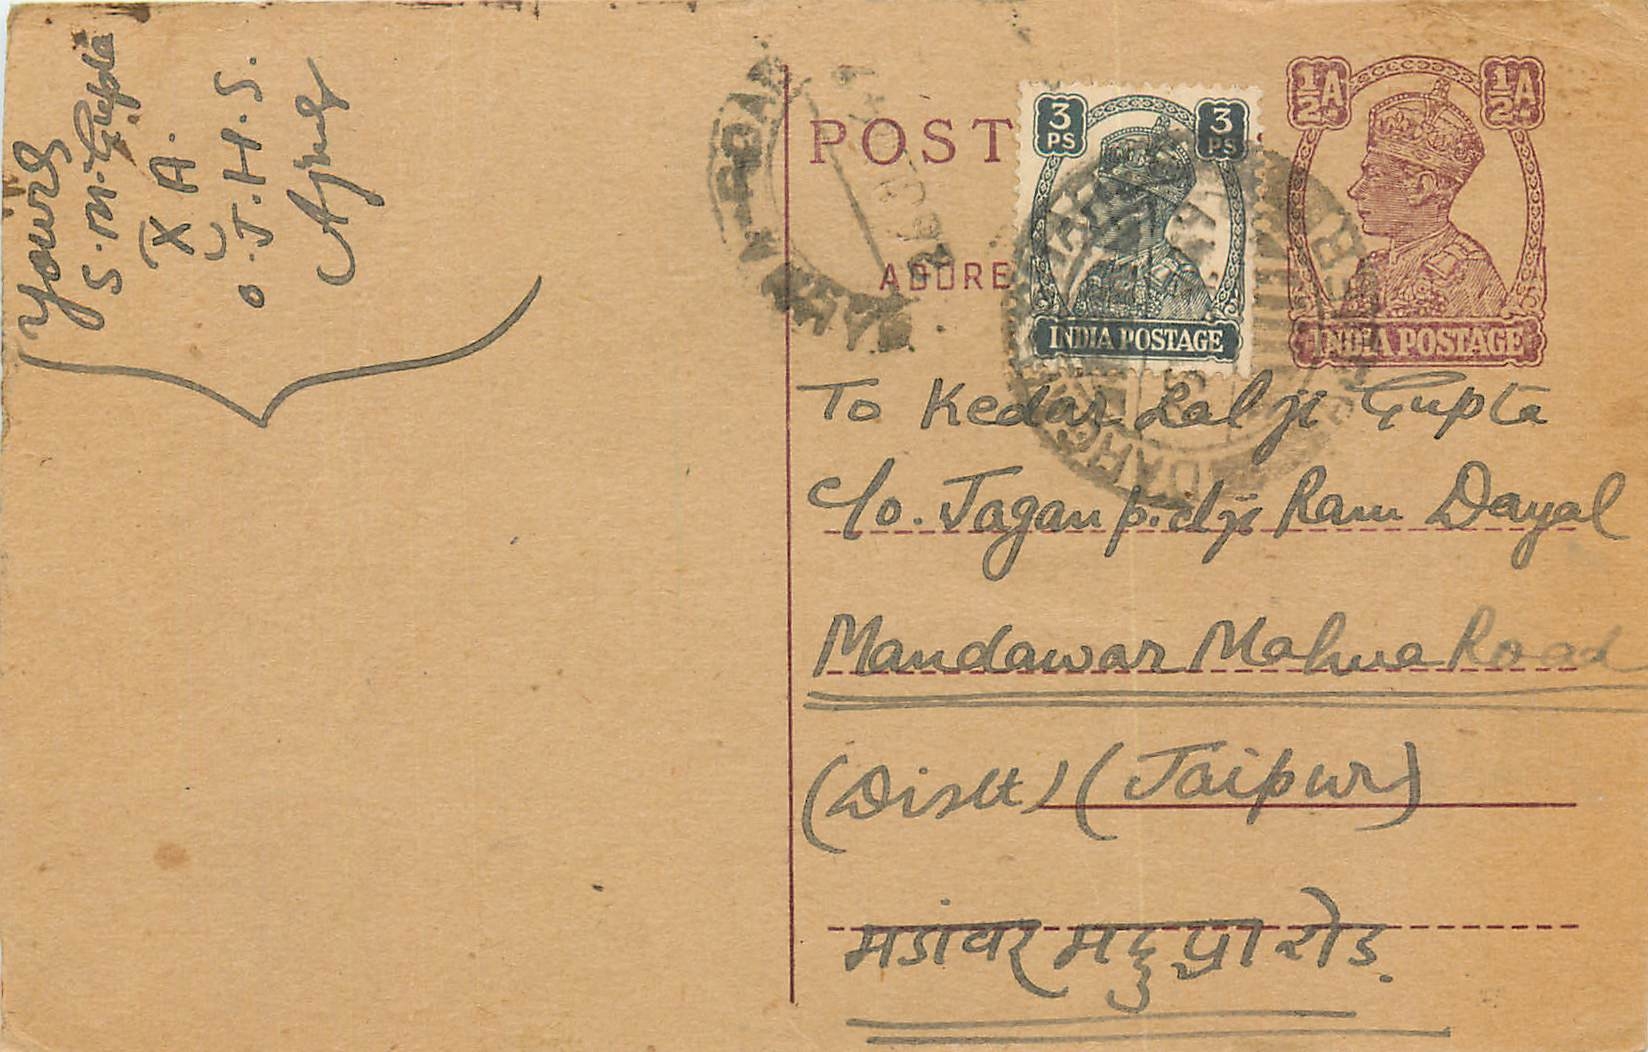 Yours
S. M. Gupta
X A.
O. J. H. S.
Ajmer
POST
ADDRE
3 PS 3 PS
INDIA POSTAGE
½A ½A
INDIA POSTAGE
To Kedar Lal ji Gupta
c/o. Jagan p.d ji Ram Dayal
Mandawar Mahua Road
(Distt) (Jaipur)
मडांवर महुआ रोड.